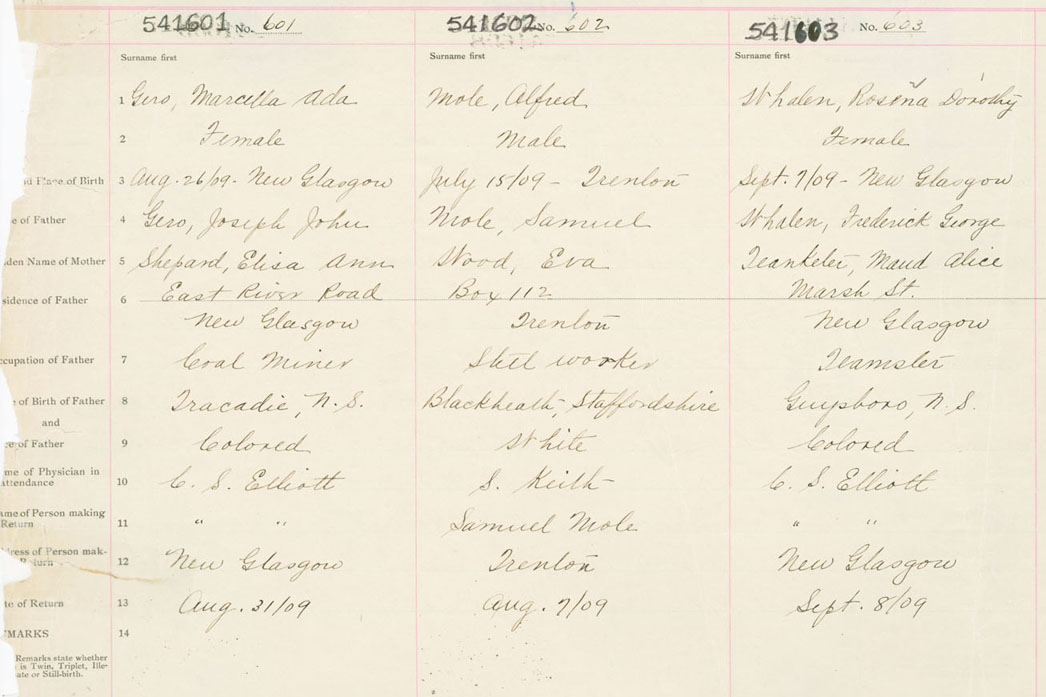 541601 No. 601 541602 No. 602 541603 No. 603
Surname first Surname first Surname first
1 Gero, Marcella Ada Mole, Alfred Whalen, Rosena Dorothy
2 Female Male Female
Place of Birth 3 Aug. 26/09 - New Glasgow July 15/09 - Trenton Sept. 7/09 - New Glasgow
of Father 4 Gero, Joseph John Mole, Samuel Whalen, Frederick George
den Name of Mother 5 Shepard, Elisa Ann Wood, Eva Maud Alice
sidence of Father 6 East River Road Box 112 Marsh St.
New Glasgow Trenton New Glasgow
ccupation of Father 7 Coal Miner Steel worker Teamster
e of Birth of Father 8 Tracadie, N.S. Blackheath, Staffordshire Guysboro, N.S.
and
of Father 9 Colored White Colored
me of Physician in
attendance 10 C. S. Elliott S. Keith C. S. Elliott
ame of Person making
Return 11 " " Samuel Mole " "
dress of Person mak-
Return 12 New Glasgow Trenton New Glasgow
te of Return 13 Aug. 31/09 Aug. 7/09 Sept. 8/09
MARKS 14
Remarks state whether
is Twin, Triplet, Ille-
ate or Still-birth.